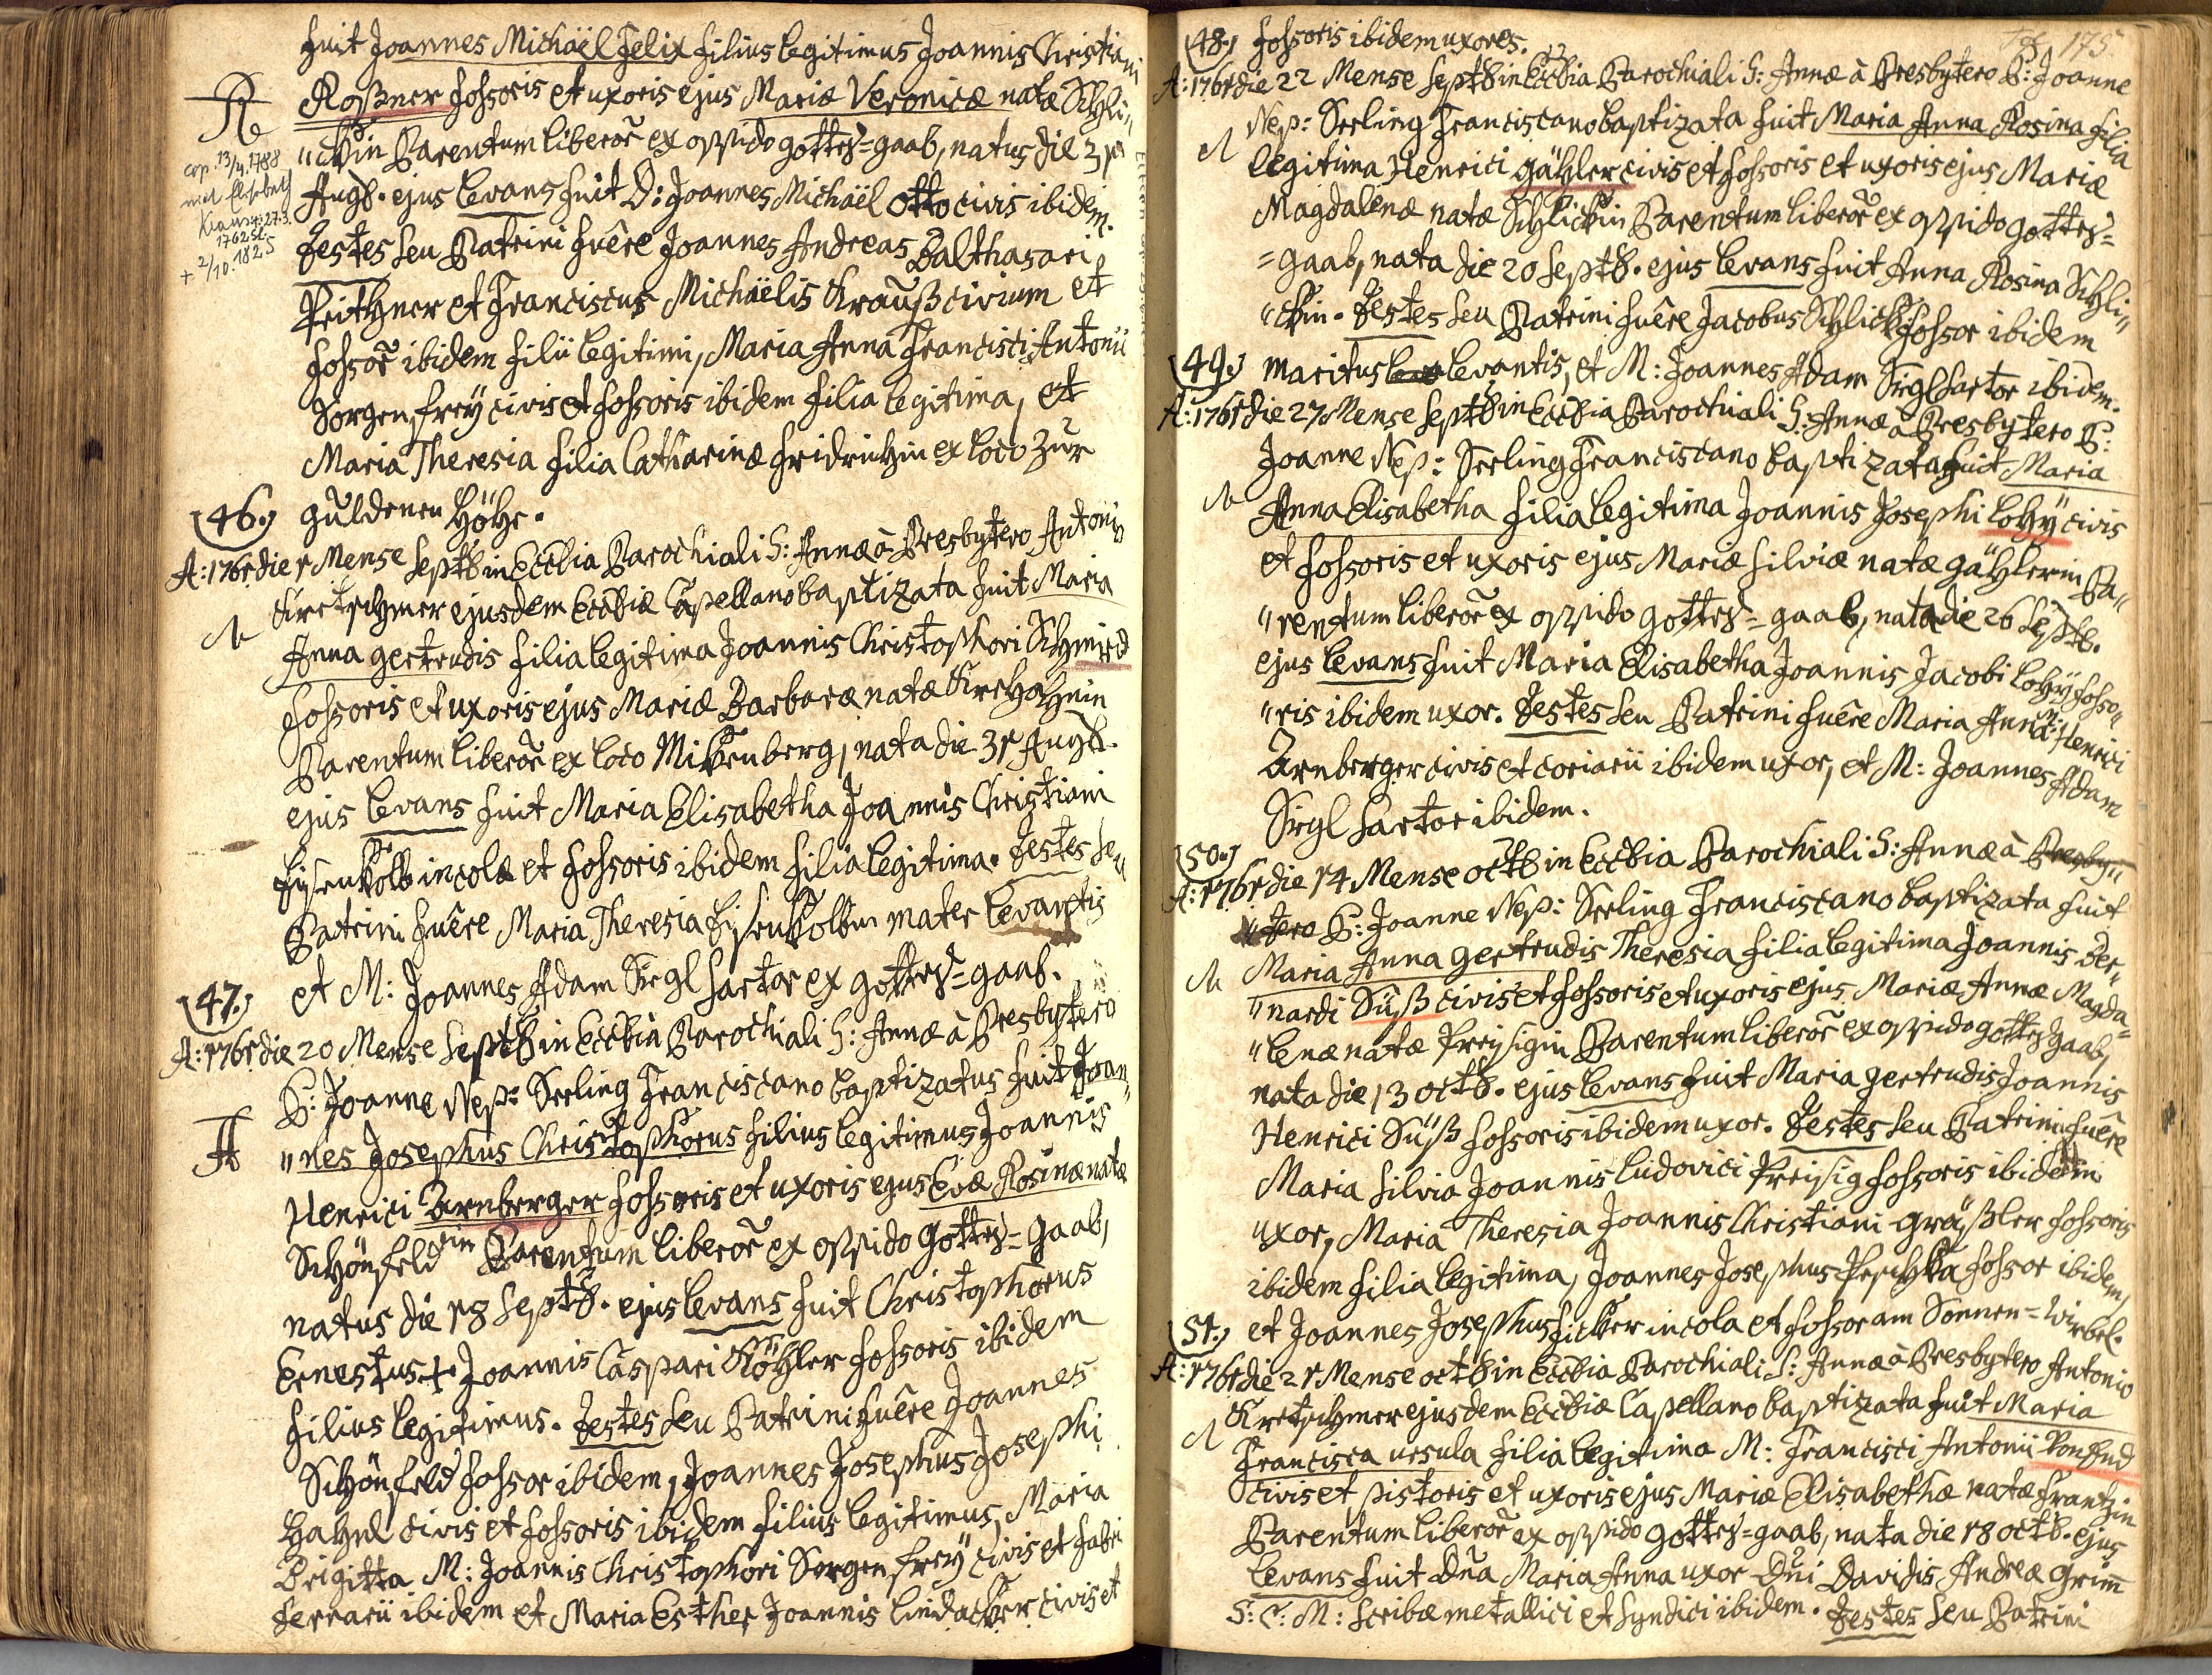 fuit Joannes Michaël Felix filius legitimus Joannis Christiani
Roßner fossoris et uxoris ejus Mariæ Veronicæ natæ Schli„
„ckin Parentum liberor̃ ex oppido gottes=gaab, natus die 31
cop. 13/4. 1788
mit Elisabeth
Kraus
1762 St.
+ 2/10. 1825
Augs. ejus levans fuit D: Joannes Michaël Otto civis ibidem.
Testes seu Patrini fuêre Joannes Andreas Balthasari
Peithner et Franciscus Michaëlis Krauß civium et
fossor̃ ibidem filii legitimi, Maria Anna Francisci Antonii
Sorgenfreÿ civis et fossoris ibidem filia legitima, et
Maria Theresia filia Catharinæ Fridrichin ex loco zur
guldenen Höhe.
46.
A: 1761 die 1 Mense Septb in Ecclia Parochiali S: Annæ à Presbytero Antonio
Kretschmer ejusdem Eccliæ Capellano baptizata fuit Maria
Anna gertrudis filia legitima Joannis Christophori Schmied
fossoris et uxoris ejus Mariæ Barbaræ natæ Kreshahnin
Parentum liberor̃ ex loco Mückenberg, nata die 31 Augs.
ejus levans fuit Maria Elisabetha Joannis Christiani
Eysenkolb incolæ et fossoris ibidem filia legitima. Testes seu
Patrini fuêre Maria Theresia Eysenkolbin mater levantis
et M: Joannes Adam Sirgl sartor ex gottes=gaab.
47.
A: 1761 die 20 Mense Septb in Ecclia Parochiali S: Annæ à Presbytero
P: Joanne Nep: Seeling Franciscano baptizatus fuit Joan„
„nes Josephus Christophorus filius legitimus Joannis
Henrici Arnberger fossoris et uxoris ejus Evæ Rosinæ natæ
Schönfeldin Parentum liberor̃ ex oppido Gottes=gaab,
natus die 18 Septb. ejus levans fuit Christophorus
Ernestus + Joannis Caspari Köhler fossoris ibidem
filius legitimus. Testes seu Patrini fuêre Joannes
Schönfeld fossor ibidem, Joannes Josephus Josephi
Hahnl civis et fossoris ibidem filius legitimus, Maria
Brigitta M: Joannis Christophori Sorgenfreÿ civis et fabri
ferrarii ibidem et Maria Esther Joannis Lindacker civis et
175
48. fossoris ibidem uxores.
A: 1761 die 22 Mense Septb in Ecclia Parochiali S: Annæ à Presbytero P: Joanne
Nep: Seeling Franciscano baptizata fuit Maria Anna Rosina filia
legitima Henrici gähler civis et fossoris et uxoris ejus Mariæ
Magdalenæ natæ Schlickin Parentum liberor̃ ex oppido gottes=
=gaab, nata die 20 Septb. ejus levans fuit Anna Rosina Schli„
„ckin. Testes seu Patrini fuêre Jacobus Schlick fossor ibidem
49. maritus levantis, et M: Joannes Adam Sirgl sartor ibidem.
A: 1761 die 27 Mense Septb in Ecclia Parochiali S: Annæ à Presbytero P:
Joanne Nep: Seeling Franciscano baptizata fuit Maria
Anna Elisabetha filia legitima Joannis Josephi Lohÿ civis
et fossoris et uxoris ejus Mariæ Silviæ natæ gählerin Pa„
„rentum liberor̃ ex oppido gottes=gaab, nata die 26 Septb.
ejus levans fuit Maria Elisabetha Joannis Jacobi Lohÿ fosso„
„ris ibidem uxor. Testes seu Patrini fuêre Maria Anna M: Henrici
Arnberger civis et coriarii ibidem uxor, et M: Joannes Adam
Sirgl sartor ibidem.
50.
A: 1761 die 14 Mense octb in Ecclia Parochiali S: Annæ à Presby„
„tero P: Joanne Nep: Seeling Franciscano baptizata fuit
Maria Anna gertrudis Theresia filia legitima Joannis Ber„
„nardi Süß civis et fossoris et uxoris ejus Mariæ Annæ Magda„
„lenæ natæ Preisigin Parentum liberor̃ ex oppido gottesgaab,
nata die 13 octb. ejus levans fuit Maria gertrudis Joannis
Henrici Süß fossoris ibidem uxor. Testes seu Patrini fuêre
Maria Silvia Joannis Ludovici Preisig fossoris ibidem
uxor, Maria Theresia Joannis Christiani gräßler fossoris
ibidem filia legitima, Joannes Josephus Peschka fossor ibidem,
51. et Joannes Josephus Ficker incola et fossor am Sonnen=wirbel.
A: 1761 die 21 Mense octb in Ecclia Parochiali S: Annæ à Presbytero Antonio
Kretschmer ejusdem Eccliæ Capellano baptizata fuit Maria
Francisca ursula filia legitima M: Francisci Antonii VonEnd
civis et pistoris et uxoris ejus Mariæ Elisabethæ natæ Frantzin
Parentum liberor̃ ex oppido gottes=gaab, nata die 18 octb. ejus
levans fuit Dña Maria Anna uxor Dñi Davidis Andreæ Grim̃
S: C: M: scribæ metallici et syndici ibidem. Testes seu Patrini